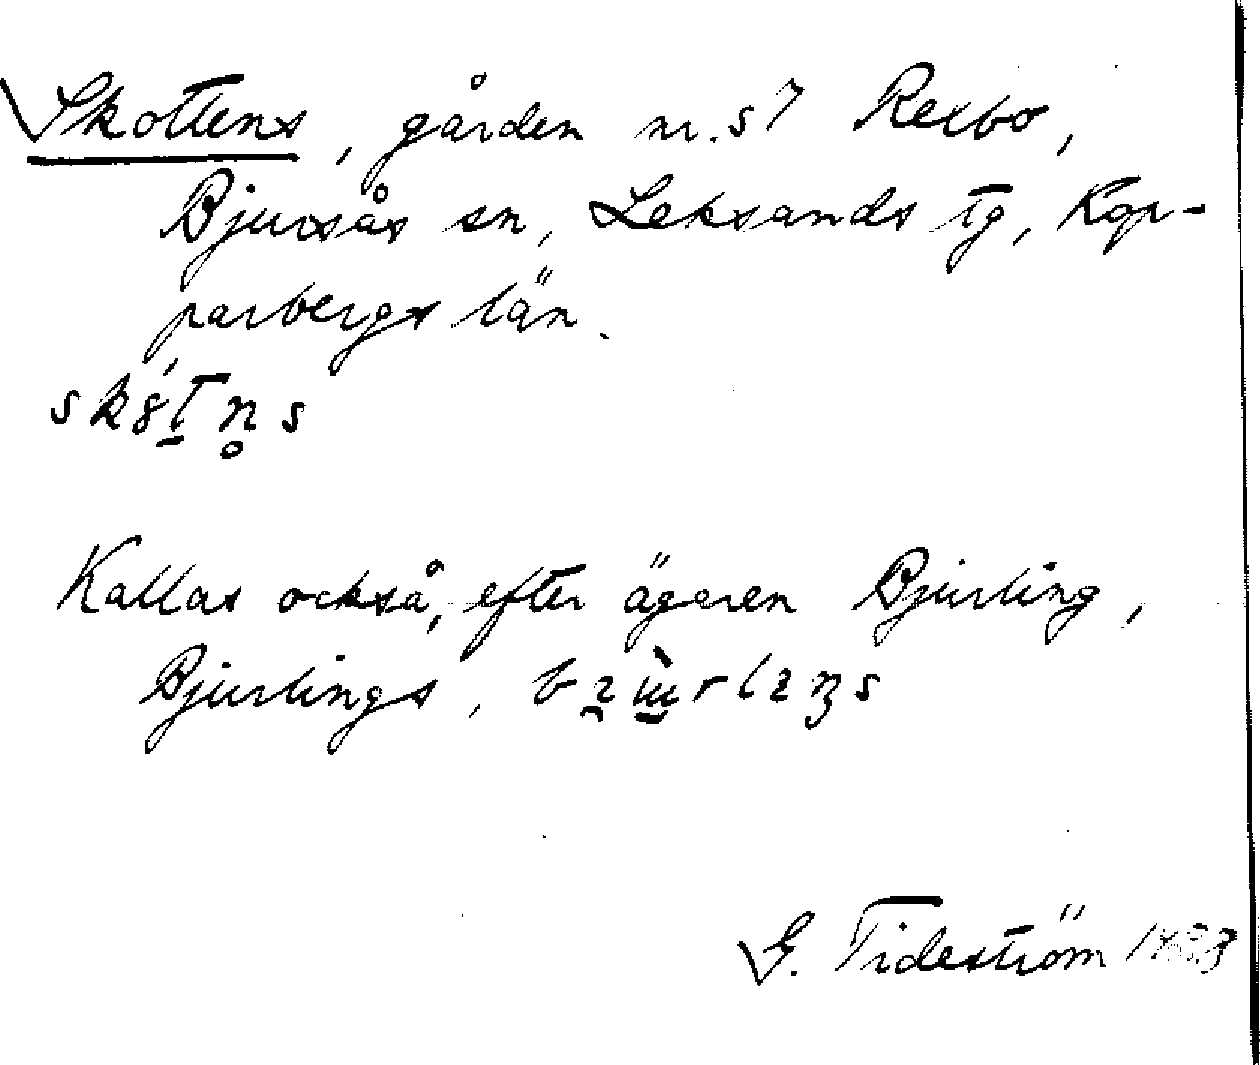 Skottens, gården nr. 57 Rexbo,
Bjursås sn, Leksands tg, Kop-
parbergs län.
Kallas också, efter ägaren Bjurling,
Bjurlings,
G. Tideström